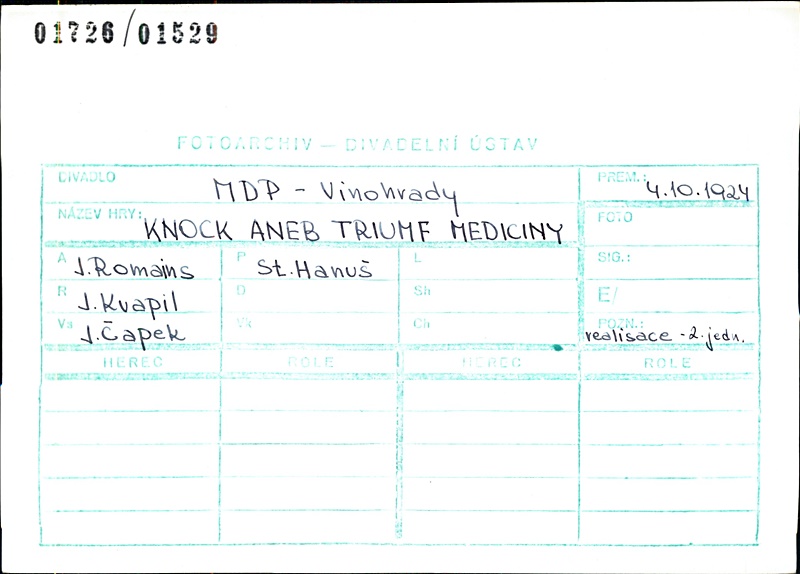 01726/01529
FOTOARCHIV — DIVADELNÍ ÚSTAV
DIVADLO MDP - Vinohrady PREM.: 4.10.1924
NÁZEV HRY: KNOCK ANEB TRIUMF MEDICINY FOTO
A J. Romains P St. Hanuš L SIG.:
R J. Kvapil D Sh E/
Vs J. Čapek Vk Ch POZN.: realisace - 2. jedn.
HEREC ROLE HEREC ROLE